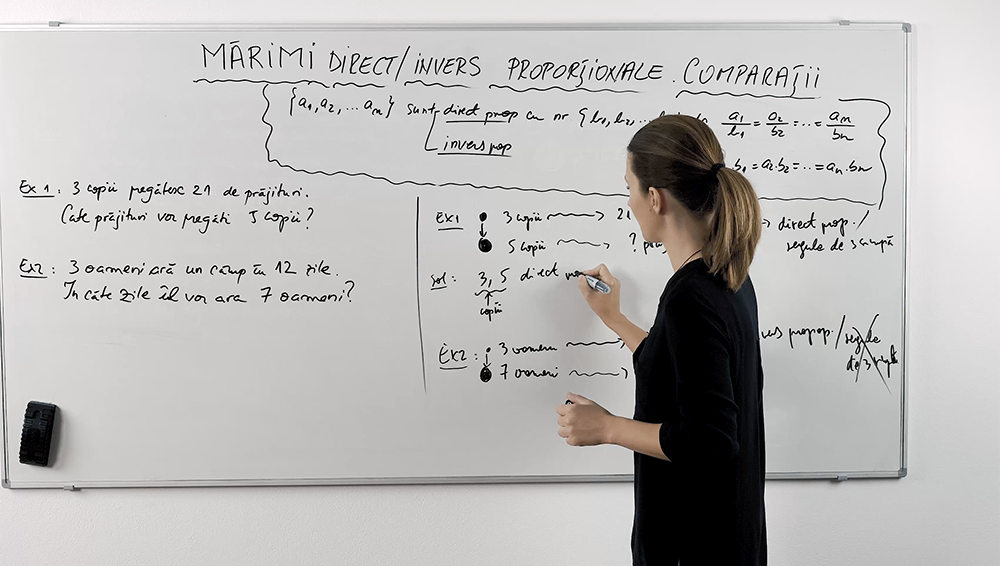 MĂRIMI DIRECT/INVERS PROPORȚIONALE. COMPARAȚII
{a1, a2, ... an} sunt direct prop cu nr {b1, b2, ... a1/b1 = a2/b2 = ... = an/bn
invers prop b1 = a2·b2 = ... = an·bn
Ex 1: 3 copii pregătesc 21 de prăjituri.
Cate prăjituri vor pregăti 5 copii?
Ex2: 3 oameni ară un câmp în 12 zile.
În câte zile îl vor ara 7 oameni?
Ex1 3 copii 2 direct prop./
5 copii ? regula de 3 simplă
sol: 3, 5 direct
copii
Ex2: 3 oameni propop. / regula
7 oameni de 3 simplă